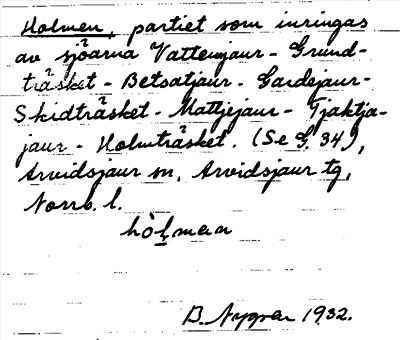 Holmen, partiet som inringas
av sjöarna Vattenjaur - Grund-
träsket - Betsatjaur - Gardejaur -
Skidträsket - Mattjejaur - Tjaktja-
jaur - Holmträsket. (Se G. 34),
Arvidsjaur sn, Arvidsjaur tg,
Norrb. l.
hòḷman
B. Nygren 1932.